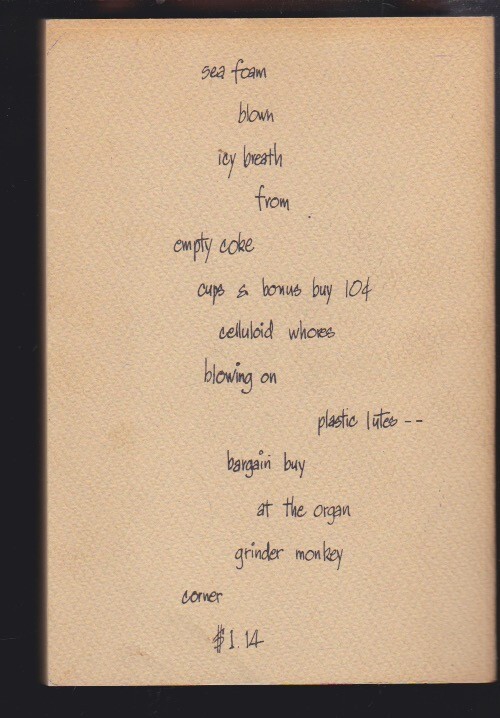 sea foam
blown
icy breath
from
empty coke
cups & bonus buy 10¢
celluloid whores
blowing on
plastic lutes --
bargain buy
at the organ
grinder monkey
corner
$1.14